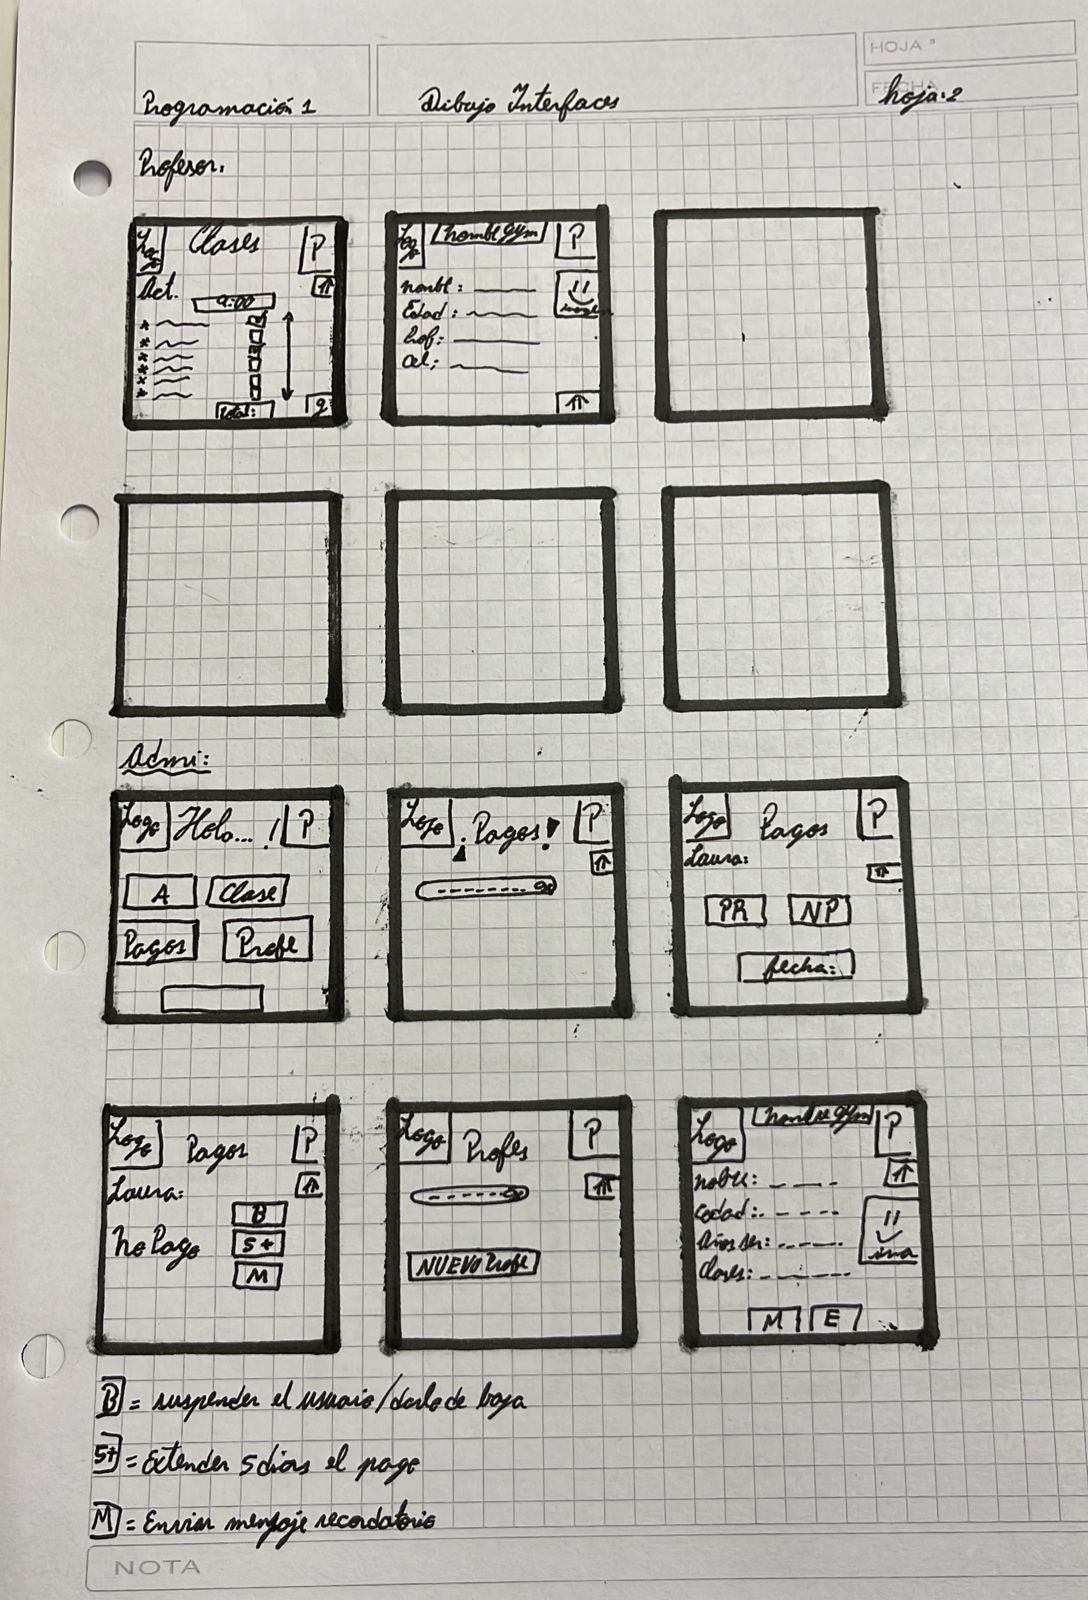 HOJA °
FECHA
Programación 1
Dibujo Interfaces
hoja: 2
Profesor:
Logo
Clases
P
Act.
⇑
9:00
Total:
g
Logo
nombre gym
P
nombre:
Edad:
Prof:
cel:
⇑
Admi:
Logo
Hola... !
P
A
Clase
Pagos
Profe
Logo
¡Pagos!
P
⇑
Logo
Pagos
P
Laura:
⇑
PR
NP
fecha:
Logo
Pagos
P
Laura:
⇑
B
No Pago
5+
M
Logo
Profes
P
⇑
NUEVO Profe
Logo
nombre gym
P
⇑
Años ser:
Clases:
M
E
B = suspender el usuario/darlo de baja
5+ = Extender 5 dias el pago
M = Enviar mensaje recordatorio
NOTA